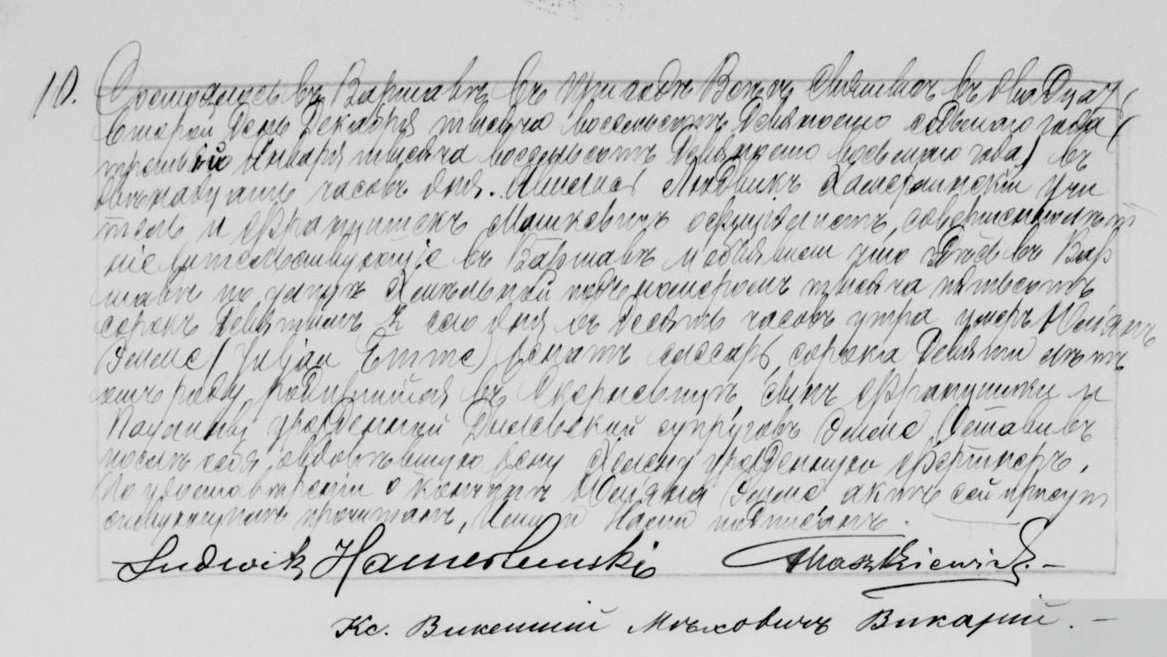 10. Состоялось въ Варшавѣ въ приходѣ Всѣхъ Святыхъ въ двадцать
второй день Декабря тысяча восемьсотъ девяносто седьмого года (
третьяго Января тысяча восемьсотъ девяносто восьмаго года) въ
двѣнадцать часовъ дня. Явились Людвикъ Гамерлинскій учи
тель и Францишекъ Машкевичъ оффиціалистъ, совершеннолѣт
ніе жительствующіе въ Варшавѣ и объявили что здѣсь въ Вар
шавѣ по улицѣ Хмѣльной подъ номеромъ тысяча пятьсотъ
сорокъ девятымъ сего дня въ десять часовъ утра умеръ Юліанъ
Эмме (Julian Emme) женатъ слесарь, сорока девяти лѣтъ
отъ роду, родившійся въ Скерневицахъ, сынъ Францишка и
Паулины урожденной супруговъ Эмме. Оставивъ
послѣ себя овдовѣвшую жену Хелену урожденную Фертнеръ.
По удостовѣреніи о кончинѣ Юліяна Эмме актъ сей присут
ствующимъ прочитанъ, Ими и Нами подписанъ.
Ludwik Hamerlinski Maszkiewicz.-
Кс. Викентій Мѣховичъ Викарій.-